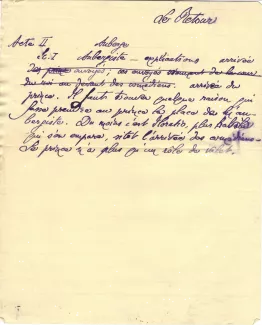 Le Retour
Acte II Auberge
Sc. I Aubergiste – explications arrivée
des envoyés; ces envoyés viennent de la cour
du roi au devant des comédiens. arrivée du
prince. Il faut trouver quelque raison qui
fasse prendre au prince la place de l'au-
bergiste. Du moins c'est Horatio, plus habile
qui s'en empare, sitôt l'arrivée des
Le prince n'a plus qu'un rôle de